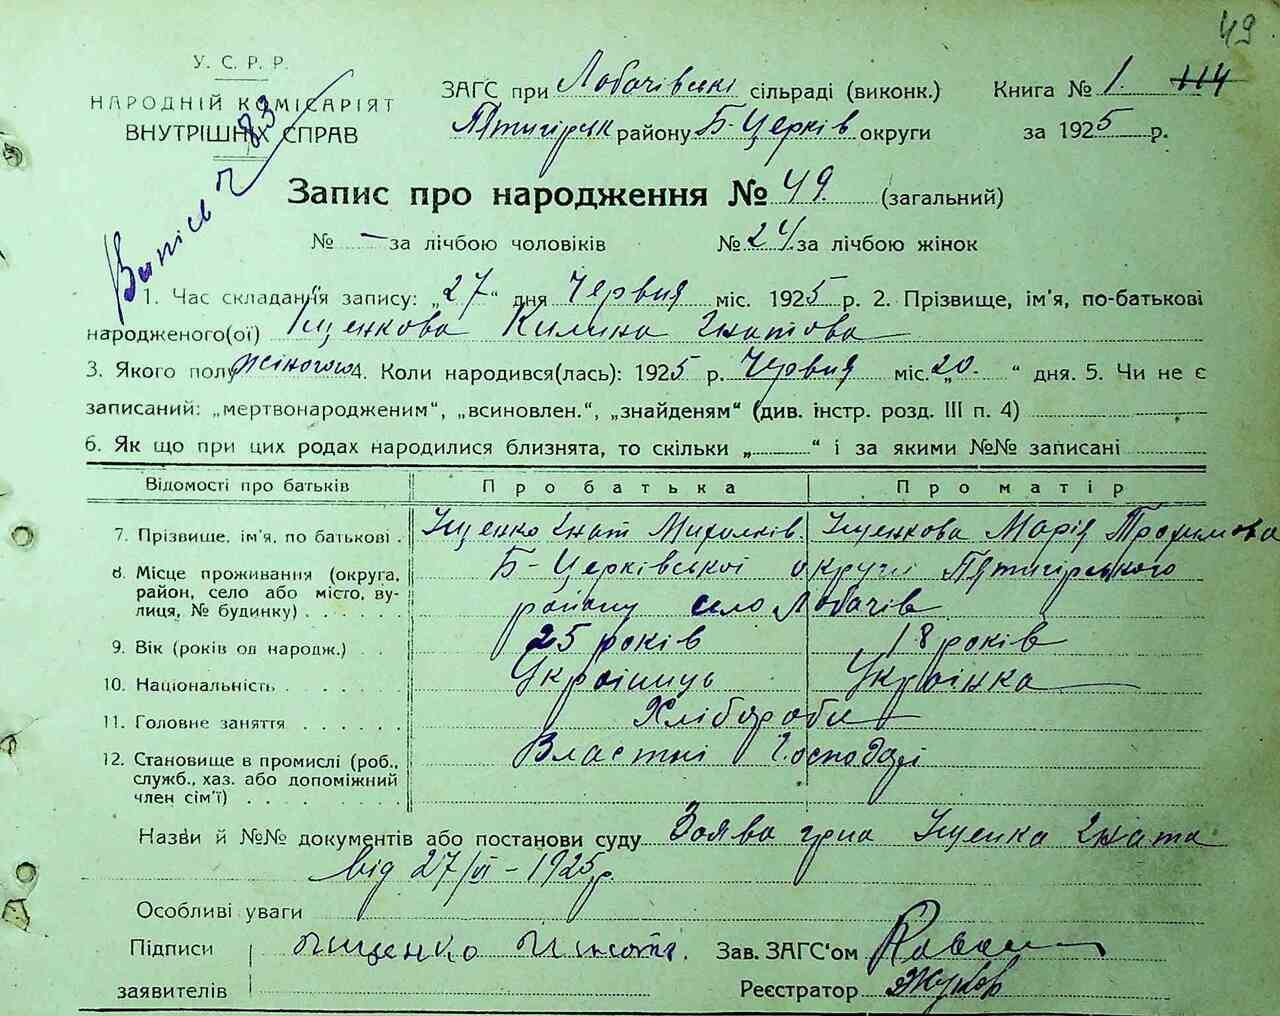 49
У. С. Р. Р.
НАРОДНІЙ КОМІСАРІЯТ
ВНУТРІШНІХ СПРАВ
ЗАГС при Лобачівські сільраді (виконк.) Книга № 1. 114
Пятигірськ району Б-Церків округи за 1925 р.
Випись 83
Запис про народження № 49. (загальний)
№ – за лічбою чоловіків № 24 за лічбою жінок
1. Час складання запису: „27“ дня Червня міс. 1925 р. 2. Прізвище, ім'я, по-батькові
народженого(ої) Іщенкова Килина Гнатова
3. Якого полу жіногого 4. Коли народився(лась): 1925 р. Червня міс. „20.“ дня. 5. Чи не є
записаний: „мертвонародженим“, „всиновлен.“, „знайденям“ (див. інстр. розд. III п. 4)
6. Як що при цих родах народилися близнята, то скільки „ “ і за якими №№ записані
Відомості про батьків Про батька Про матір
7. Прізвище, ім'я, по батькові . Іщенко Гнат Михалків. Іщенкова Марія Трохимова
8. Місце проживання (округа, Б-Церківської округи Пятигірського
район, село або місто, ву- району село Лобачів
лиця, № будинку) . . . . .
9. Вік (років од народж.) . . 25 років 18 років
10. Національність . . . . . Україниць Українка
11. Головне заняття . . . . . Хлібороби
12. Становище в промислі (роб., Властні Господарі
служб., хаз. або допоміжний
член сім'ї) . . . . . . .
Назви й №№ документів або постанови суду Заява гр-на Іщенка Гната
від 27/VI – 1925 р.
Особливі уваги
Підписи Іщенко Зав. ЗАГС'ом
заявителів Реєстратор Жуков